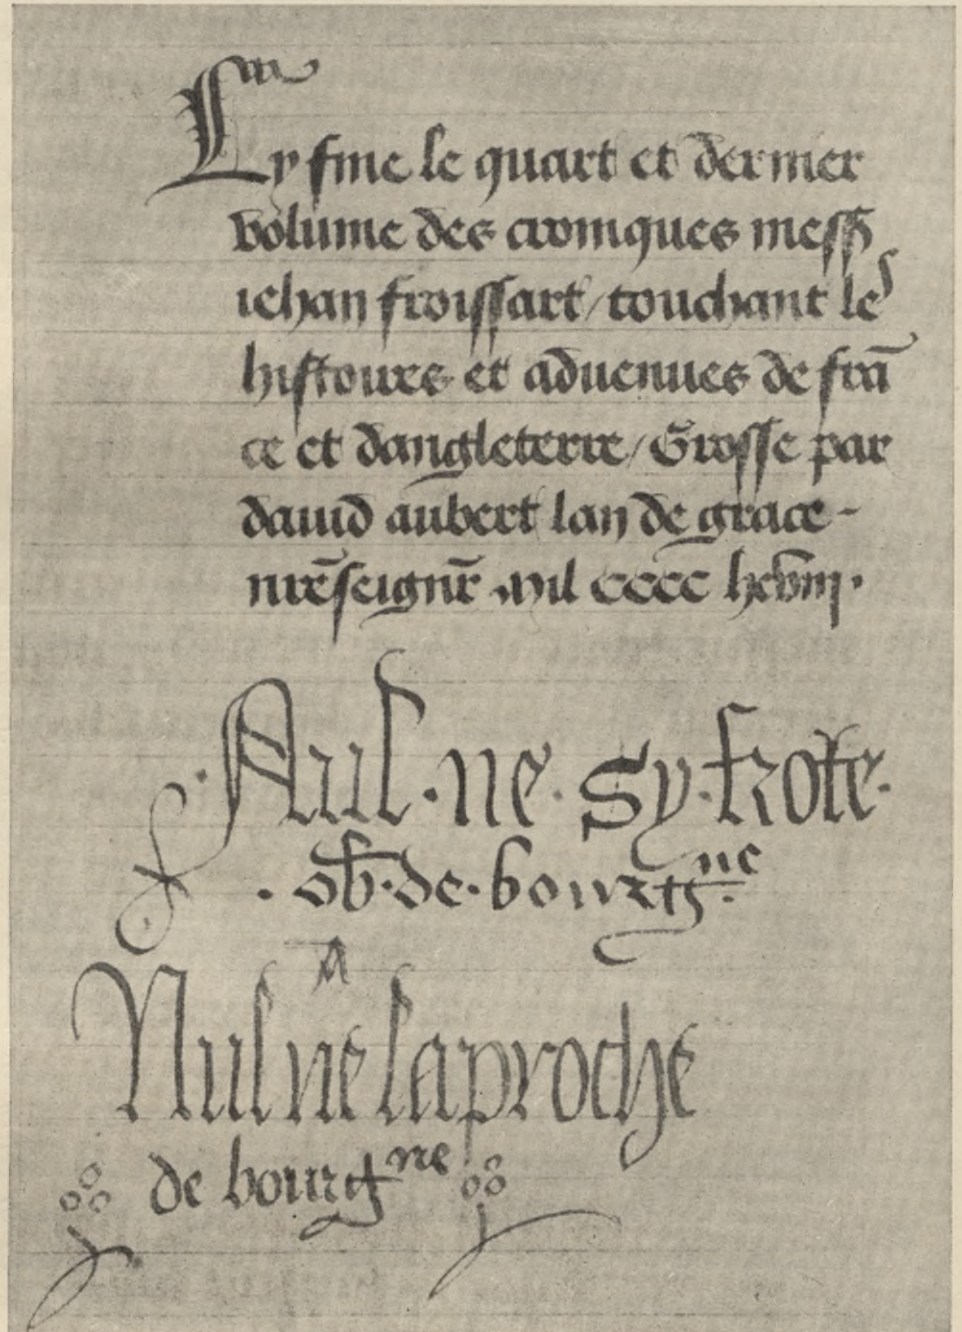 Cy fine le quart et dernier
volume des croniques mess̄
iehan froissart / touchant les
histoires et aduenues de frā
ce et dangleterre / Grosse par
dauid aubert lan de grace -
nr̄e seignr̄ . mil cccc lxviij .
Nul . ne . sy . frote .
. ob . de . bourgne .
A
Nul ne laproche
de bourgne